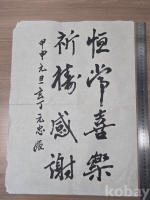 恒常喜樂
祈禱感謝
甲申元旦
kobay